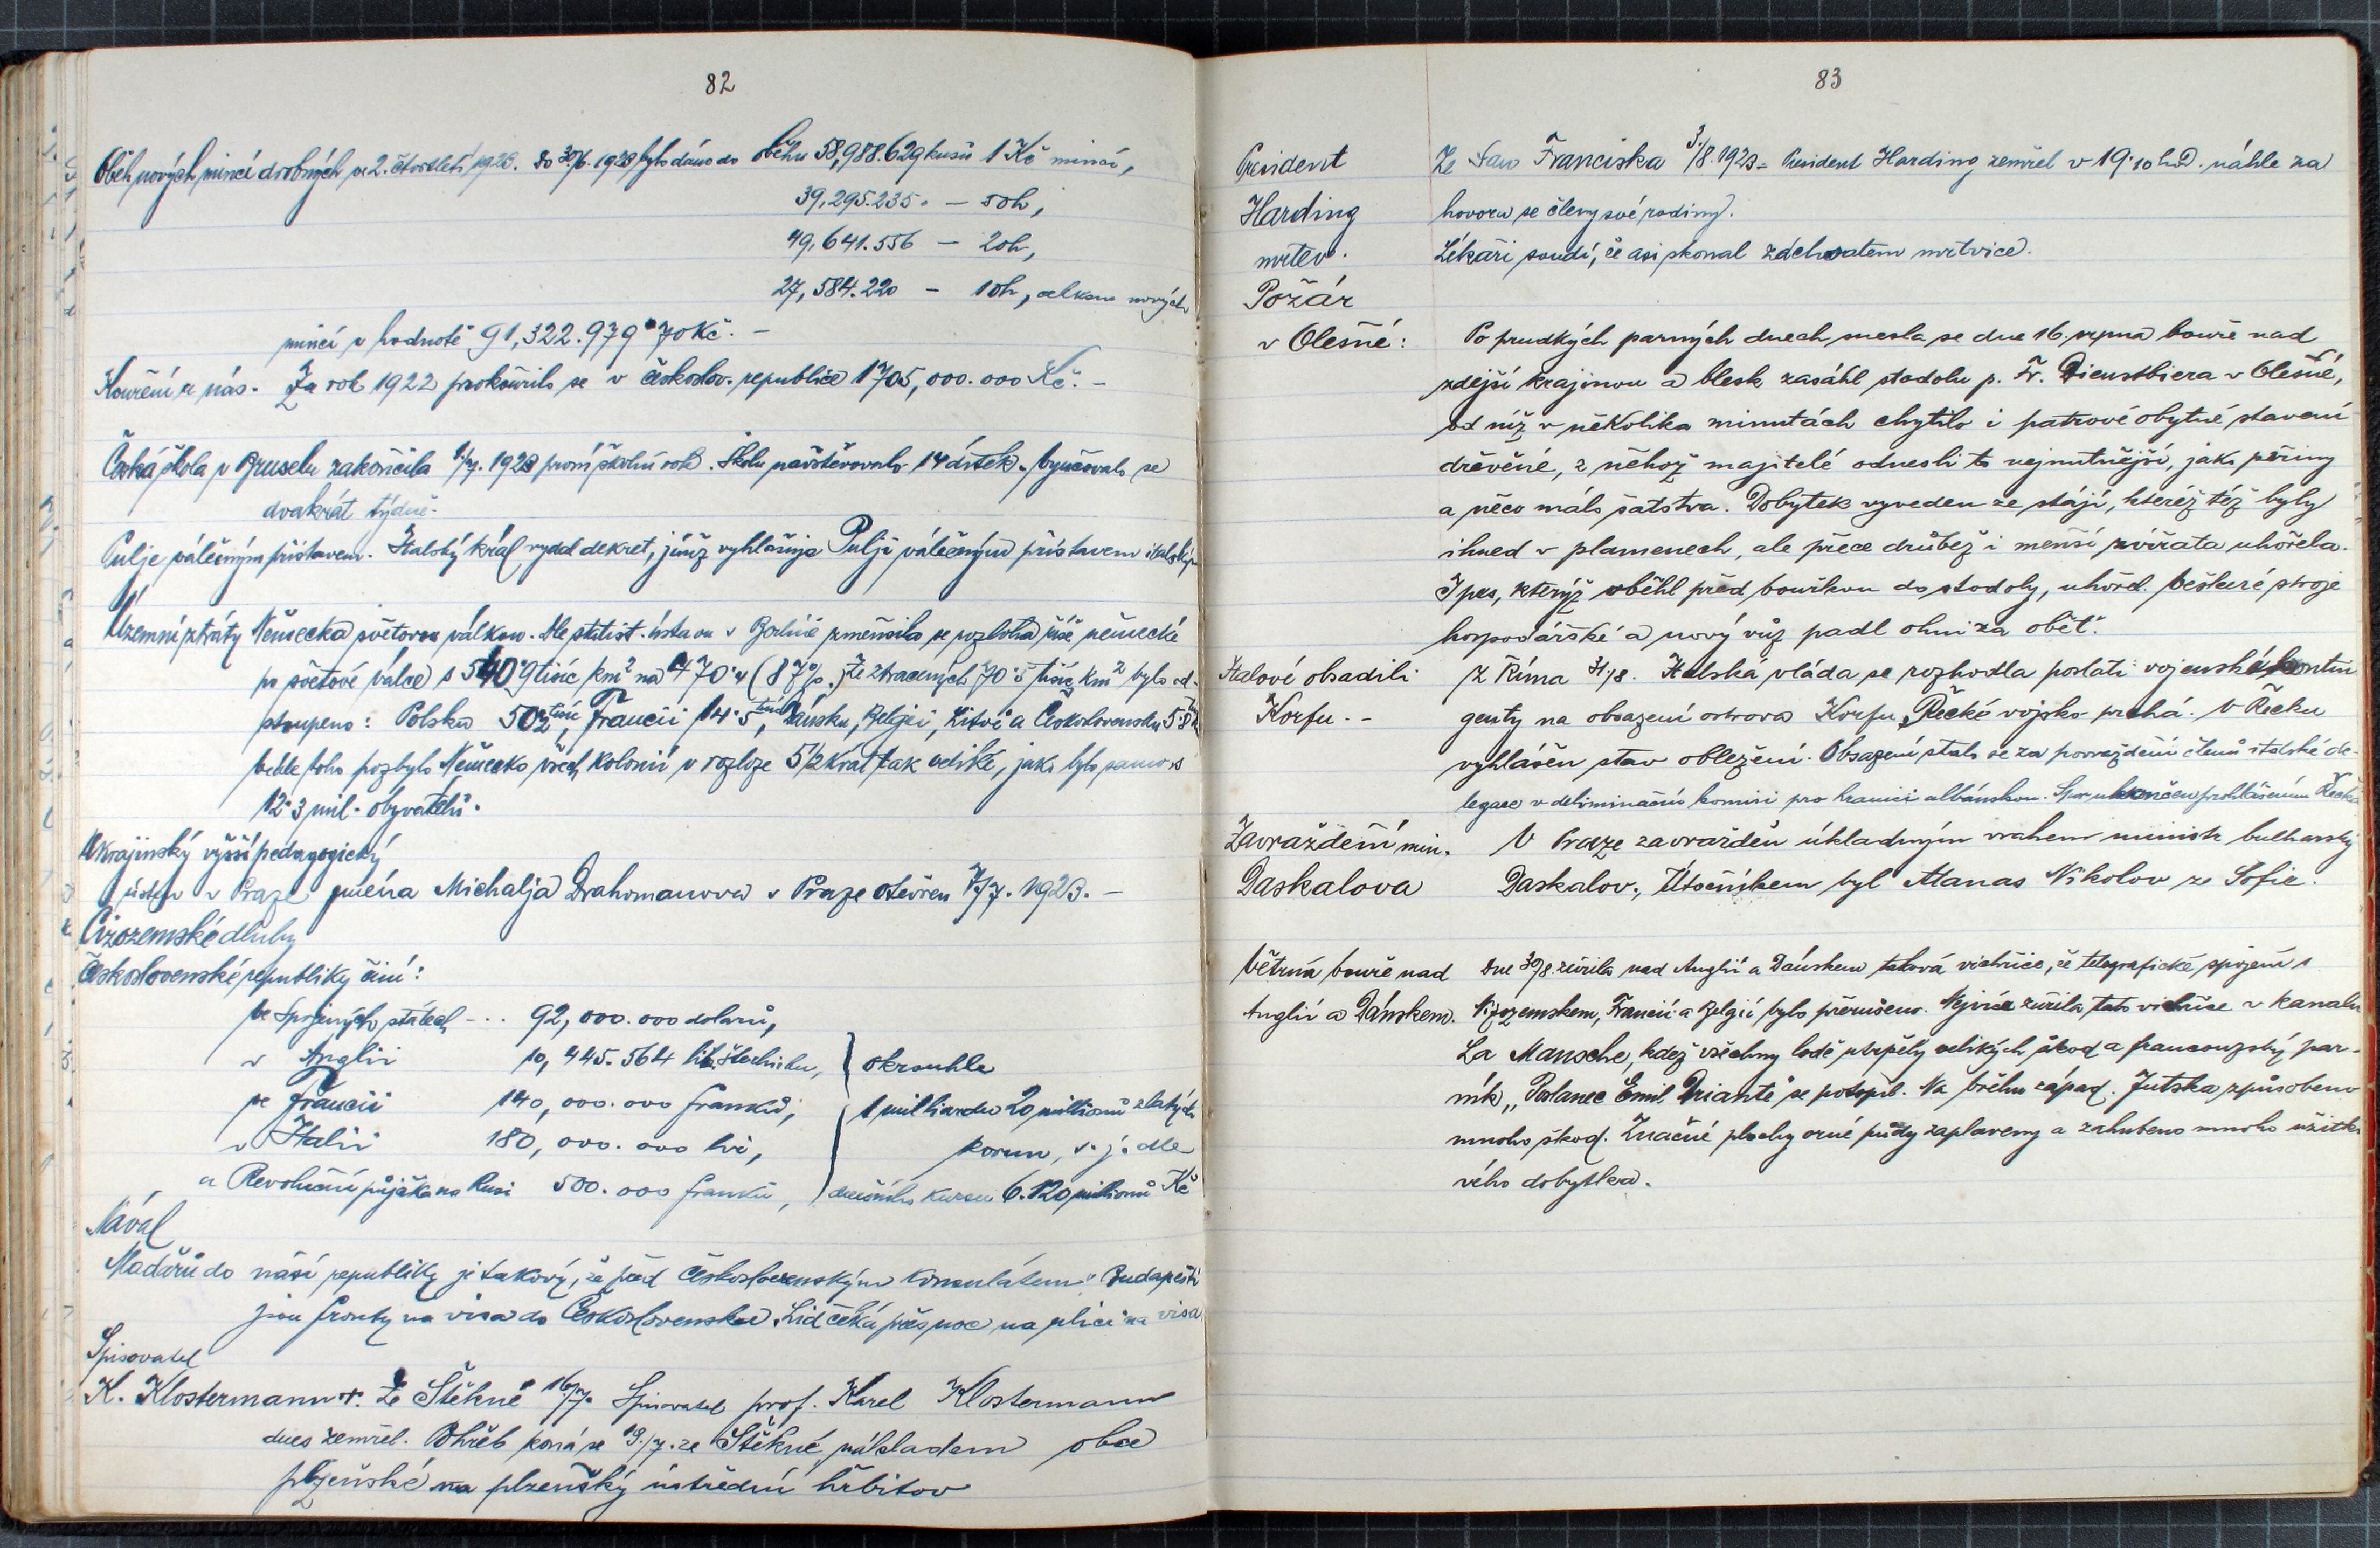 82
Oběh nových mincí drobných ve 2. čtvrtletí 1923. Do 30/6. 1923 bylo dáno do oběhu 58,988.629 kusů 1 Kč mincí,
39,295.235. — 50h,
49,641.556 — 20h,
27,584.220 — 10h, celkem nových
mincí v hodnotě 91,322.979·70Kč. —
Kouření u nás. Za rok 1922 prokouřilo se v českoslov. republice 1705,000.000 Kč. —
Česká škola v Bruselu zakončila 1/7. 1923 první školní rok. Školu navštěvovalo 14 dítek. Vyučovalo se
dvakrát týdně.
Pulje válečným přístavem. Italský král vydal dekret, jímž vyhlašuje Pulji válečným přístavem italským
Územní ztráty Německa světovou válkou. Dle statist. ústavu v Berlíně zmenšila se rozloha říše německé
po světové válce s 540·9 tisíc km² na 470·4 (87%.) Ze ztracených 70·5 tisíc km² bylo od-
stoupeno: Polsku 50½ tisíc, Francii 14·5 tisíc, Dánsku, Belgii, Litvě a Československu 5·8
Vedle toho pozbylo Německo všech kolonií v rozloze 5½krát tak veliké, jako bylo samo s
12·3 mil. obyvatelů.
Ukrajinský vyšší pedagogický
ústav v Praze jména Michalja Drahomanova v Praze otevřen 7/7. 1923. —
Cizozemské dluhy
Československé republiky činí:
ve Spojených státech - .. 92,000.000 dolarů,
v Anglii 10,445.564 lib. šterlinku, okrouhle
ve Francii 140,000.000 franků, 1 milliardu 20 millionů zlatých
v Italii 180,000.000 lir, korun, t. j. dle
a Revoluční půjčka na Rusi 500.000 franků, dnešního kursu 6.120 millionů Kč
Nával
Maďarů do naší republiky je takový, že před Československým konsulátem v Budapešti
jsou fronty na visa do Československa. Lid čeká přes noc na ulici na visa
Spisovatel
K. Klostermann †. Ze Štěkně 16/7. Spisovatel prof. Karel Klostermann
dnes zemřel. Pohřeb koná se 19./7. ze Štěkně nákladem obce
plzeňské na plzeňský ústřední hřbitov
83
President Ze San Franciska 3/8. 1923 = President Harding zemřel v 19·10 h. náhle za
Harding hovoru se členy své rodiny.
mrtev. Lékaři soudí, že asi skonal záchvatem mrtvice.
Požár
v Olešné: Po prudkých parných dnech snesla se dne 16. srpna bouře nad
zdejší krajinou a blesk zasáhl stodolu p. Fr. Dienstbiera v Olešné,
od níž v několika minutách chytilo i patrové obytné stavení
dřevěné, z něhož majitelé odnesli to nejnutnější, jako peřiny
a něco málo šatstva. Dobytek vyveden ze stájí, kteréž též byly
ihned v plamenech, ale přece drůbež i menší zvířata uhořela.
I pes, kterýž vběhl před bouřkou do stodoly, uhořel. Veškeré stroje
hospodářské a nový vůz padl ohni za oběť.
Italové obsadili Z Říma 31./8. Italská vláda se rozhodla poslati vojenské kontin
Korfu. - genty na obsazení ostrova Korfu. Řecké vojsko prchá. V Řecku
vyhlášen stav obležení. Obsazení stalo se za povraždění členů italské de-
legace v deliminační komisi pro hranici albánskou. Spor ukončen prohlášením Řecka
Zavraždění min. V Praze zavražděn úkladným vrahem ministr bulharský
Daskalova Daskalov. Útočníkem byl Atanas Nikolov ze Sofie.
Větrná bouře nad Dne 30/8. zuřila nad Anglií a Dánskem taková vichřice, že telegrafické spojení s
Anglií a Dánskem. Nizozemskem, Francií a Belgií bylo přerušeno. Nejvíce zuřila tato vichřice v kanalu
La Mansche, kdež všechny lodě utrpěly velikých škod a francouzský par-
ník „Poslanec Emil Driante" se potopil. Na břehu západ. Jutska způsobeno
mnoho škod. Značné plochy orné půdy zaplaveny a zahubeno mnoho užitko
vého dobytka.